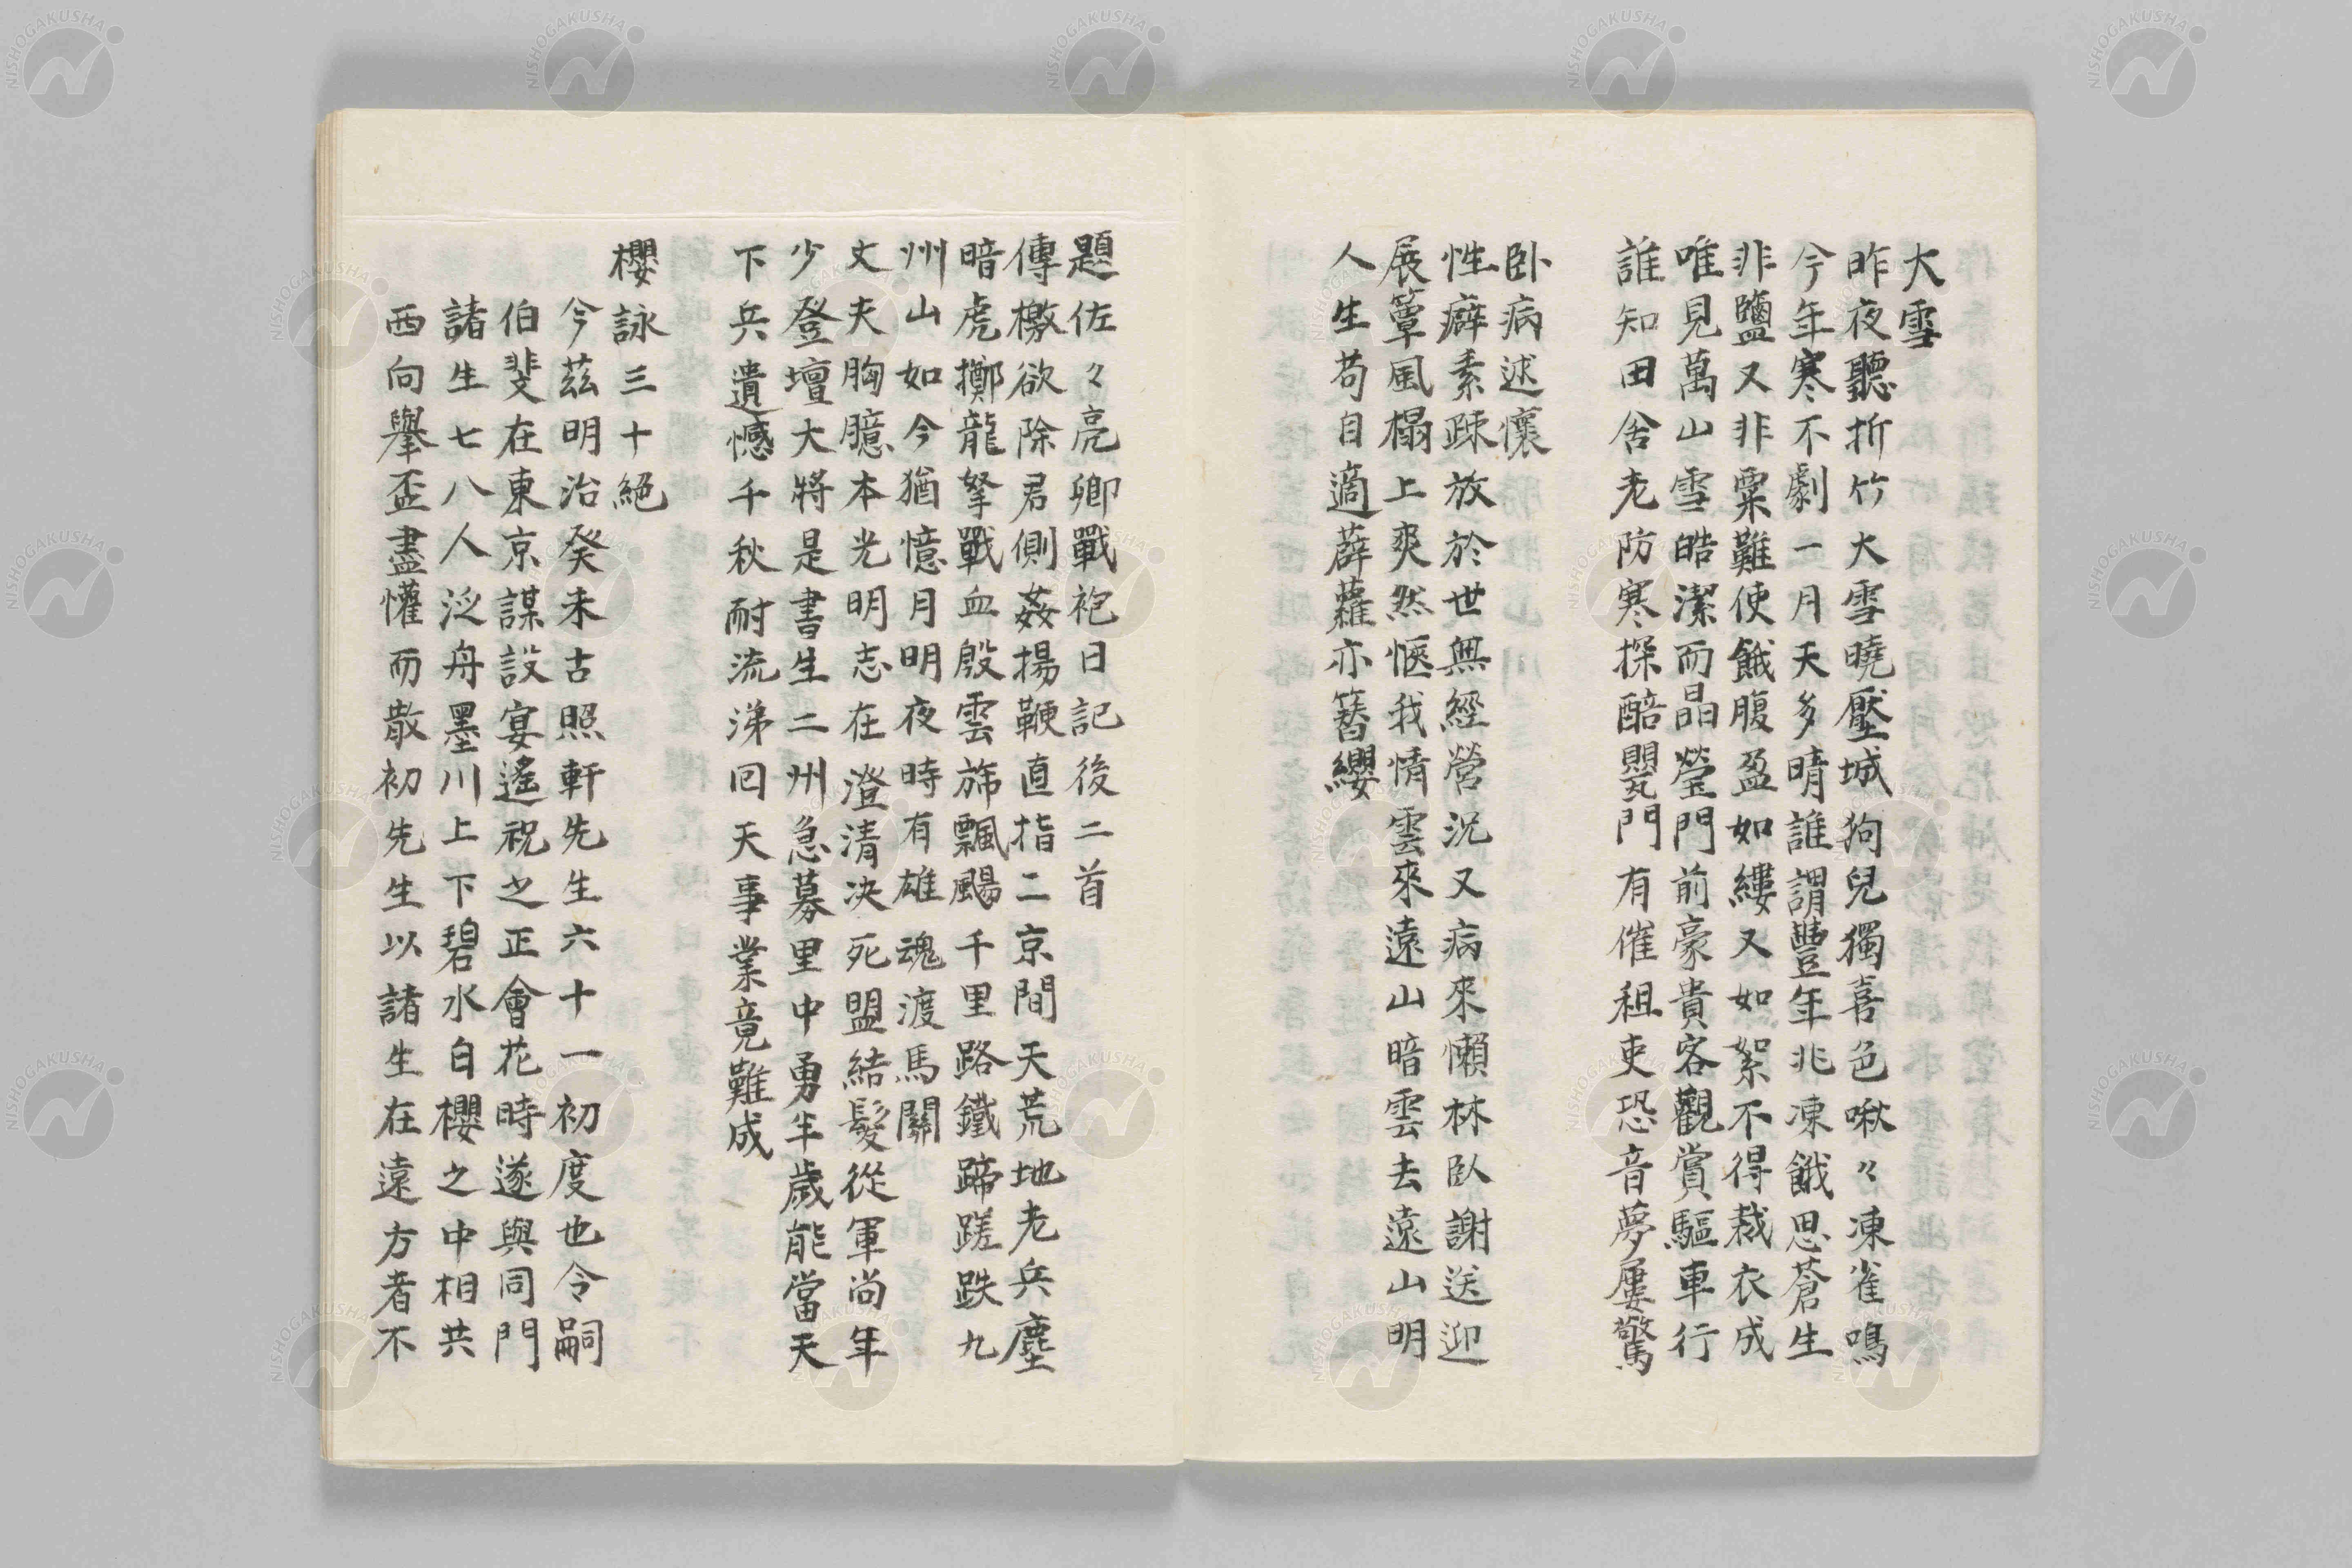 大雪
昨夜聽折竹大雪曉壓城狗兒獨喜色啾々凍雀鳴
今年寒不劇一月天多晴誰謂豐年兆凍餓思蒼生
非鹽又非粟難使餓腹盈如縷又如絮不得裁衣成
唯見萬山雪皓潔而晶瑩門前豪貴客觀賞驅車行
誰知田舍老防寒探醅甖門有催租吏恐音夢屢驚
卧病述懷
性癖素疎放於世無經營況又病來懶牀臥謝送迎
展簟風榻上爽然愜我情雲來遠山暗雲去遠山明
人生苟自適薜蘿亦簪纓
題佐々亮卿戰袍日記後二首
傳檄欲除君側姦揚鞭直指二京間天荒地老兵塵
暗虎擲龍拏戰血殷雲旆飄颺千里路鐵蹄蹉跌九
州山如今猶憶月明夜時有雄魂渡馬關
丈夫胸臆本光明志在澄清决死盟結髮從軍尚年
少登壇大將是書生二州急募里中勇半歲能當天
下兵遺憾千秋耐流涕回天事業竟難成
櫻詠三十絕
今茲明治癸未古照軒先生六十一初度也令嗣
伯斐在東京謀設宴遙祝之正會花時遂與同門
諸生七八人泛舟墨川上下碧水白櫻之中相共
西向擧盃盡懽而散初先生以諸生在遠方者不
NISHOGAKUSHA
NISHOGAKUSHA
NISHOGAKUSHA
NISHOGAKUSHA
NISHOGAKUSHA